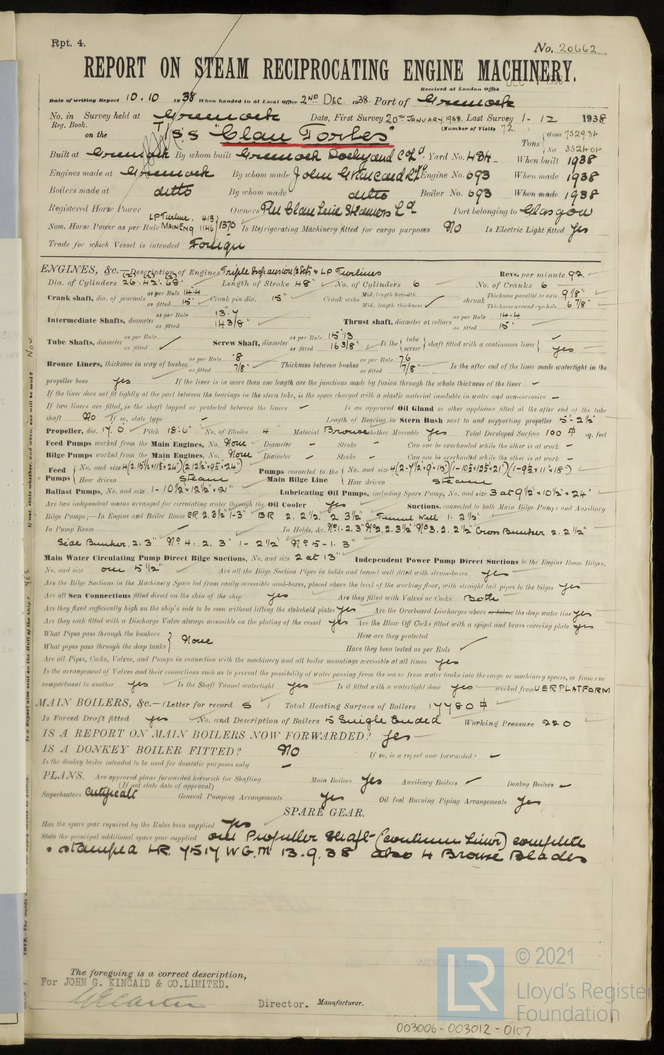 Rpt. 4.
No. 20662
REPORT ON STEAM RECIPROCATING ENGINE MACHINERY.
Received at London Office
Date of writing Report 10.10 1938 When handed in at Local Office 2ND DEC 1938 Port of Greenock
No. in Survey held at Greenock Date, First Survey 20TH JANUARY 1938. Last Survey 1-12 1938
Reg. Book. (Number of Visits 72)
on the T.S.S "Clan Forbes" Tons Gross 7529.34 Net
Built at Greenock By whom built Greenock Dockyard Co Ld Yard No. 434 When built 1938
Engines made at Greenock By whom made John G Kincaid & Co Ld Engine No. 693 When made 1938
Boilers made at ditto By whom made ditto Boiler No. 693 When made 1938
Registered Horse Power Owners The Clan Line Steamers Ld Port belonging to Glasgow
Nom. Horse Power as per Rule LP Turbine 413 Main Eng 1370 Is Refrigerating Machinery fitted for cargo purposes No Is Electric Light fitted Yes
Trade for which Vessel is intended Foreign
ENGINES, &c.—Description of Engines Triple Expansion & LP Turbines Revs. per minute 92
Dia. of Cylinders 26.42.68 Length of Stroke 48" No. of Cylinders 6 No. of Cranks 6
Crank shaft, dia. of journals as per Rule 14.4 as fitted 15" Crank pin dia. 15" Crank webs Mid. length breadth Mid. length thickness shrunk Thickness parallel to axis 9 1/8" Thickness around eye-hole 6 7/8"
Intermediate Shafts, diameter as per Rule 13.7 as fitted 14 3/8" Thrust shaft, diameter at collars as per Rule 14.4 as fitted 15"
Tube Shafts, diameter as per Rule as fitted Screw Shaft, diameter as per Rule 15.13 as fitted 16 3/8" Is the tube screw shaft fitted with a continuous liner yes
Bronze Liners, thickness in way of bushes as per Rule .8 as fitted 7/8" Thickness between bushes as per Rule .76 as fitted 7/8" Is the after end of the liner made watertight in the
propeller boss yes If the liner is in more than one length are the junctions made by fusion through the whole thickness of the liner –
If the liner does not fit tightly at the part between the bearings in the stern tube, is the space charged with a plastic material insoluble in water and non-corrosive –
If two liners are fitted, is the shaft lapped or protected between the liners – Is an approved Oil Gland or other appliance fitted at the after end of the tube
shaft No If so, state type – Length of Bearing in Stern Bush next to and supporting propeller 5'-2 1/2"
Propeller, dia. 17'.0" Pitch 18'.6" No. of Blades 4 Material Bronze whether Moveable Yes Total Developed Surface 100 sq. feet
Feed Pumps worked from the Main Engines, No. None Diameter – Stroke – Can one be overhauled while the other is at work –
Bilge Pumps worked from the Main Engines, No. None Diameter – Stroke – Can one be overhauled while the other is at work –
Feed Pumps No. and size How driven Steam Pumps connected to the Main Bilge Line No. and size How driven Steam
Ballast Pumps, No. and size 1-10 1/2 × 12 1/2 × 21" Lubricating Oil Pumps, including Spare Pump, No. and size 3 at 9 1/2 × 10 1/2 × 24"
Are two independent means arranged for circulating water through the Oil Cooler Yes Suctions, connected to both Main Bilge Pumps and Auxiliary
Bilge Pumps:—In Engine and Boiler Room Tunnel Well 1.2 1/2"
In Pump Room – In Holds, &c. Cross Bunker 2.2 1/2"
Side Bunker 2.3" No 4. 2.3" 1-2 1/2" No 5-1.3"
Main Water Circulating Pump Direct Bilge Suctions, No. and size 2 at 13" Independent Power Pump Direct Suctions to the Engine Room Bilges,
No. and size one 5 1/2" Are all the Bilge Suction Pipes in holds and tunnel well fitted with strum-boxes yes
Are the Bilge Suctions in the Machinery Spaces led from easily accessible mud-boxes, placed above the level of the working floor, with straight tail pipes to the bilges yes
Are all Sea Connections fitted direct on the skin of the ship yes Are they fitted with Valves or Cocks Both
Are they fixed sufficiently high on the ship's side to be seen without lifting the stokehold plates Yes Are the Overboard Discharges above or below the deep water line yes
Are they each fitted with a Discharge Valve always accessible on the plating of the vessel Yes Are the Blow Off Cocks fitted with a spigot and brass covering plate yes
What Pipes pass through the bunkers None How are they protected
What pipes pass through the deep tanks Have they been tested as per Rule
Are all Pipes, Cocks, Valves, and Pumps in connection with the machinery and all boiler mountings accessible at all times yes
Is the arrangement of Valves and their connections such as to prevent the possibility of water passing from the sea or from water tanks into the cargo or machinery spaces, or from one
compartment to another yes Is the Shaft Tunnel watertight yes Is it fitted with a watertight door yes worked from UPPER PLATFORM
MAIN BOILERS, &c.—(Letter for record S) Total Heating Surface of Boilers 17780
Is Forced Draft fitted yes No. and Description of Boilers 5 Single Ended Working Pressure 220
IS A REPORT ON MAIN BOILERS NOW FORWARDED? Yes
IS A DONKEY BOILER FITTED? No If so, is a report now forwarded? –
Is the donkey boiler intended to be used for domestic purposes only –
PLANS. Are approved plans forwarded herewith for Shafting Main Boilers Yes Auxiliary Boilers Donkey Boilers –
(If not state date of approval)
Superheaters Certificate General Pumping Arrangements yes Oil fuel Burning Piping Arrangements yes
SPARE GEAR.
Has the spare gear required by the Rules been supplied Yes
State the principal additional spare gear supplied one Propeller shaft (continuous Liner) complete
& stamped LR 7517 WGM 13.9.38 also 4 Bronze Blades
The foregoing is a correct description,
For JOHN G. KINCAID & CO. LIMITED.
Director. Manufacturer.
LR
© 2021
Lloyd's Register
Foundation
003006-003012-0107